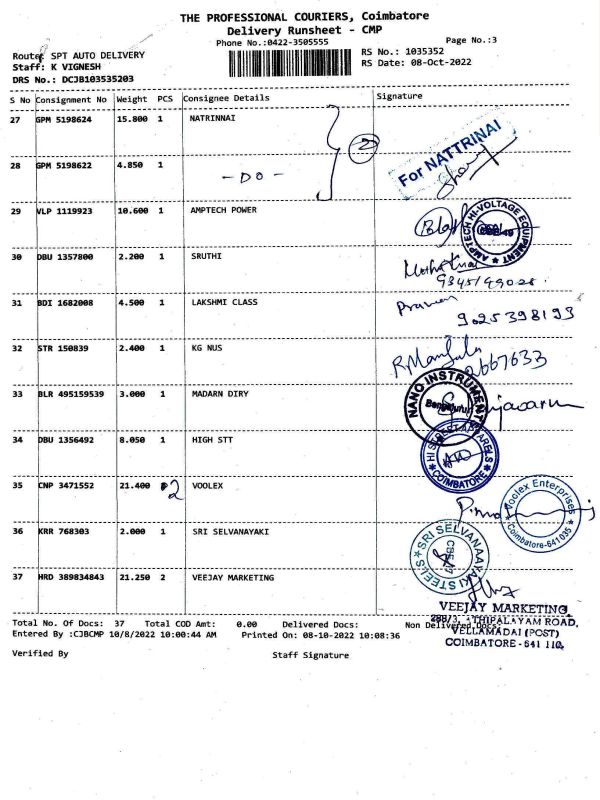 THE PROFESSIONAL COURIERS, Coimbatore
Delivery Runsheet - CMP
Phone No.:0422-3505555
Page No.:3
Route: SPT AUTO DELIVERY
RS No.: 1035352
Staff: K VIGNESH
RS Date: 08-Oct-2022
DRS No.: DCJB103535203
S No Consignment No Weight PCS Consignee Details Signature
27 GPM 5198624 15.800 1 NATRINNAI
2
For NATTRINAI
28 GPM 5198622 4.850 1 - DO -
29 VLP 1119923 10.600 1 AMPTECH POWER
AMPTECH HI-VOLTAGE EQUIPMENT
30 DBU 1357800 2.200 1 SRUTHI
31 BDI 1682008 4.500 1 LAKSHMI CLASS
Praveen
9025398193
32 STR 150839 2.400 1 KG NUS
R.Manjula
33 BLR 495159539 3.000 1 MADARN DIRY
NANO INSTRUMENT
Bengaluru
34 DBU 1356492 8.050 1 HIGH STT
COIMBATORE
35 CNP 3471552 21.400 2 VOOLEX
Voolex Enterprises
Coimbatore-641035
36 KRR 768303 2.000 1 SRI SELVANAYAKI
SRI SELVANAAYAKI STEELS
37 HRD 389834843 21.250 2 VEEJAY MARKETING
VEEJAY MARKETING
28B/3, ATHIPALAYAM ROAD,
VELLAMADAI (POST)
COIMBATORE - 641 110.
Total No. Of Docs: 37 Total COD Amt: 0.00 Delivered Docs: Non Delivered Docs:
Entered By :CJBCMP 10/8/2022 10:00:44 AM Printed On: 08-10-2022 10:08:36
Verified By Staff Signature